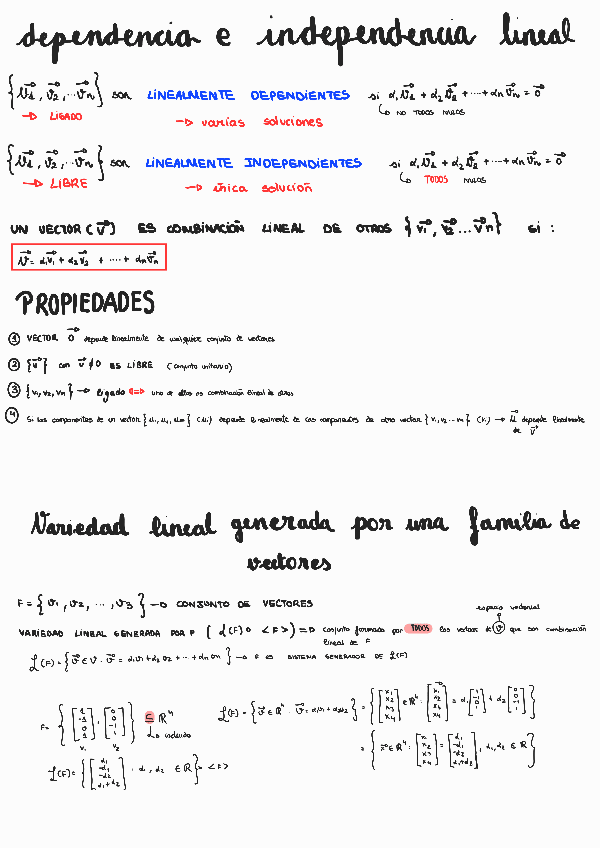 dependencia e independencia lineal
{v₁, v₂, ... vₙ} son LINEALMENTE DEPENDIENTES si α₁v₁ + α₂v₂ + ... + αₙvₙ = 0
→ LIGADO → varias soluciones ↳ NO TODOS NULOS
{v₁, v₂, ... vₙ} son LINEALMENTE INDEPENDIENTES si α₁v₁ + α₂v₂ + ... + αₙvₙ = 0
→ LIBRE → única solución ↳ TODOS NULOS
UN VECTOR (v) ES COMBINACIÓN LINEAL DE OTROS {v₁, v₂ ... vₙ} si :
v = α₁v₁ + α₂v₂ + .... + αₙvₙ
PROPIEDADES
① VECTOR 0 depende linealmente de cualquier conjunto de vectores
② {v} con v ≠ 0 ES LIBRE (conjunto unitario)
③ {v₁, v₂, vₙ} → ligado ⇔ uno de ellos es combinación lineal de otros
④ Si las componentes de un vector {u₁, u₂, uₘ} (uᵢ) depende linealmente de las componentes de otro vector {v₁, v₂ ... vₙ} (vᵢ) → u depende linealmente
de v
Variedad lineal generada por una familia de
vectores
F = {v₁, v₂, ..., v₃} → CONJUNTO DE VECTORES
espacio vectorial
VARIEDAD LINEAL GENERADA POR F ( L(F) o <F> ) ⇒ conjunto formado por TODOS los vectores de V que son combinación
lineal de F
L(F) = {v ∈ V : v = α₁v₁ + α₂v₂ + ... + αₙvₙ} → F es SISTEMA GENERADOR DE L(F)
F = { [1 -1 0 1], [0 0 -1 1] } ⊆ ℝ⁴
v₁ v₂ ↳ incluido
L(F) = {v ∈ ℝ⁴ : v = α₁v₁ + α₂v₂} = { [x₁ x₂ x₃ x₄] ∈ ℝ⁴ : [x₁ x₂ x₃ x₄] = α₁ [1 -1 0 1] + α₂ [0 0 -1 1] }
= { v ∈ ℝ⁴ : [x₁ x₂ x₃ x₄] = [α₁ -α₁ -α₂ α₁+α₂], α₁, α₂ ∈ ℝ }
L(F) = { [α₁ -α₁ -α₂ α₁+α₂] : α₁, α₂ ∈ ℝ } = <F>